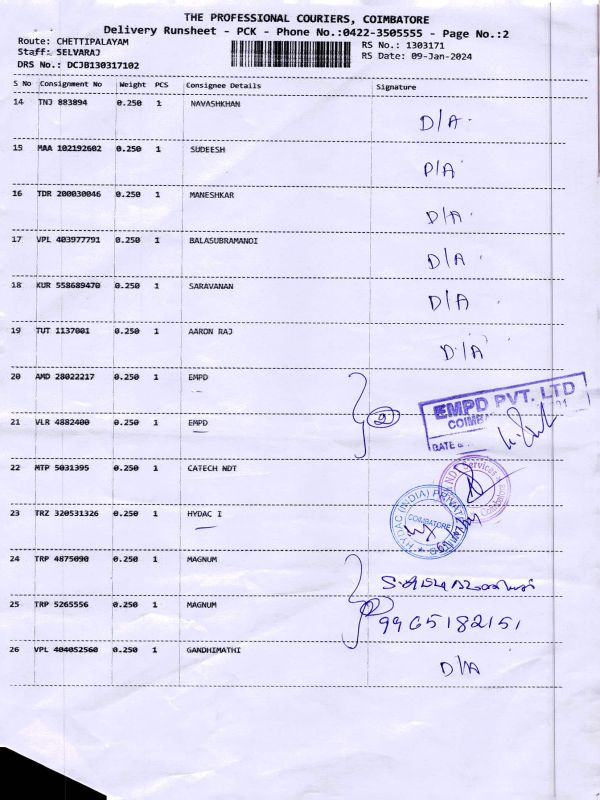 THE PROFESSIONAL COURIERS, COIMBATORE
Delivery Runsheet - PCK - Phone No.:0422-3505555 - Page No.:2
Route: CHETTIPALAYAM
Staff: SELVARAJ
DRS No.: DCJB130317102
RS No.: 1303171
RS Date: 09-Jan-2024
S No Consignment No Weight PCS Consignee Details Signature
14 TNJ 883894 0.250 1 NAVASHKHAN D/A
15 MAA 102192602 0.250 1 SUDEESH D/A
16 TDR 200030046 0.250 1 MANESHKAR D/A
17 VPL 403977791 0.250 1 BALASUBRAMANOI D/A
18 KUR 558689470 0.250 1 SARAVANAN D/A
19 TUT 1137001 0.250 1 AARON RAJ D/A
20 AMD 28022217 0.250 1 EMPD
21 VLR 4882400 0.250 1 EMPD
2
EMPD PVT. LTD
DATE
22 MTP 5031395 0.250 1 CATECH NDT
NDT Services
Coimbatore
23 TRZ 320531326 0.250 1 HYDAC I
HYDAC (INDIA) PRIVATE
COIMBATORE
24 TRP 4875090 0.250 1 MAGNUM
25 TRP 5265556 0.250 1 MAGNUM
2
9965182151
26 VPL 404052560 0.250 1 GANDHIMATHI D/A